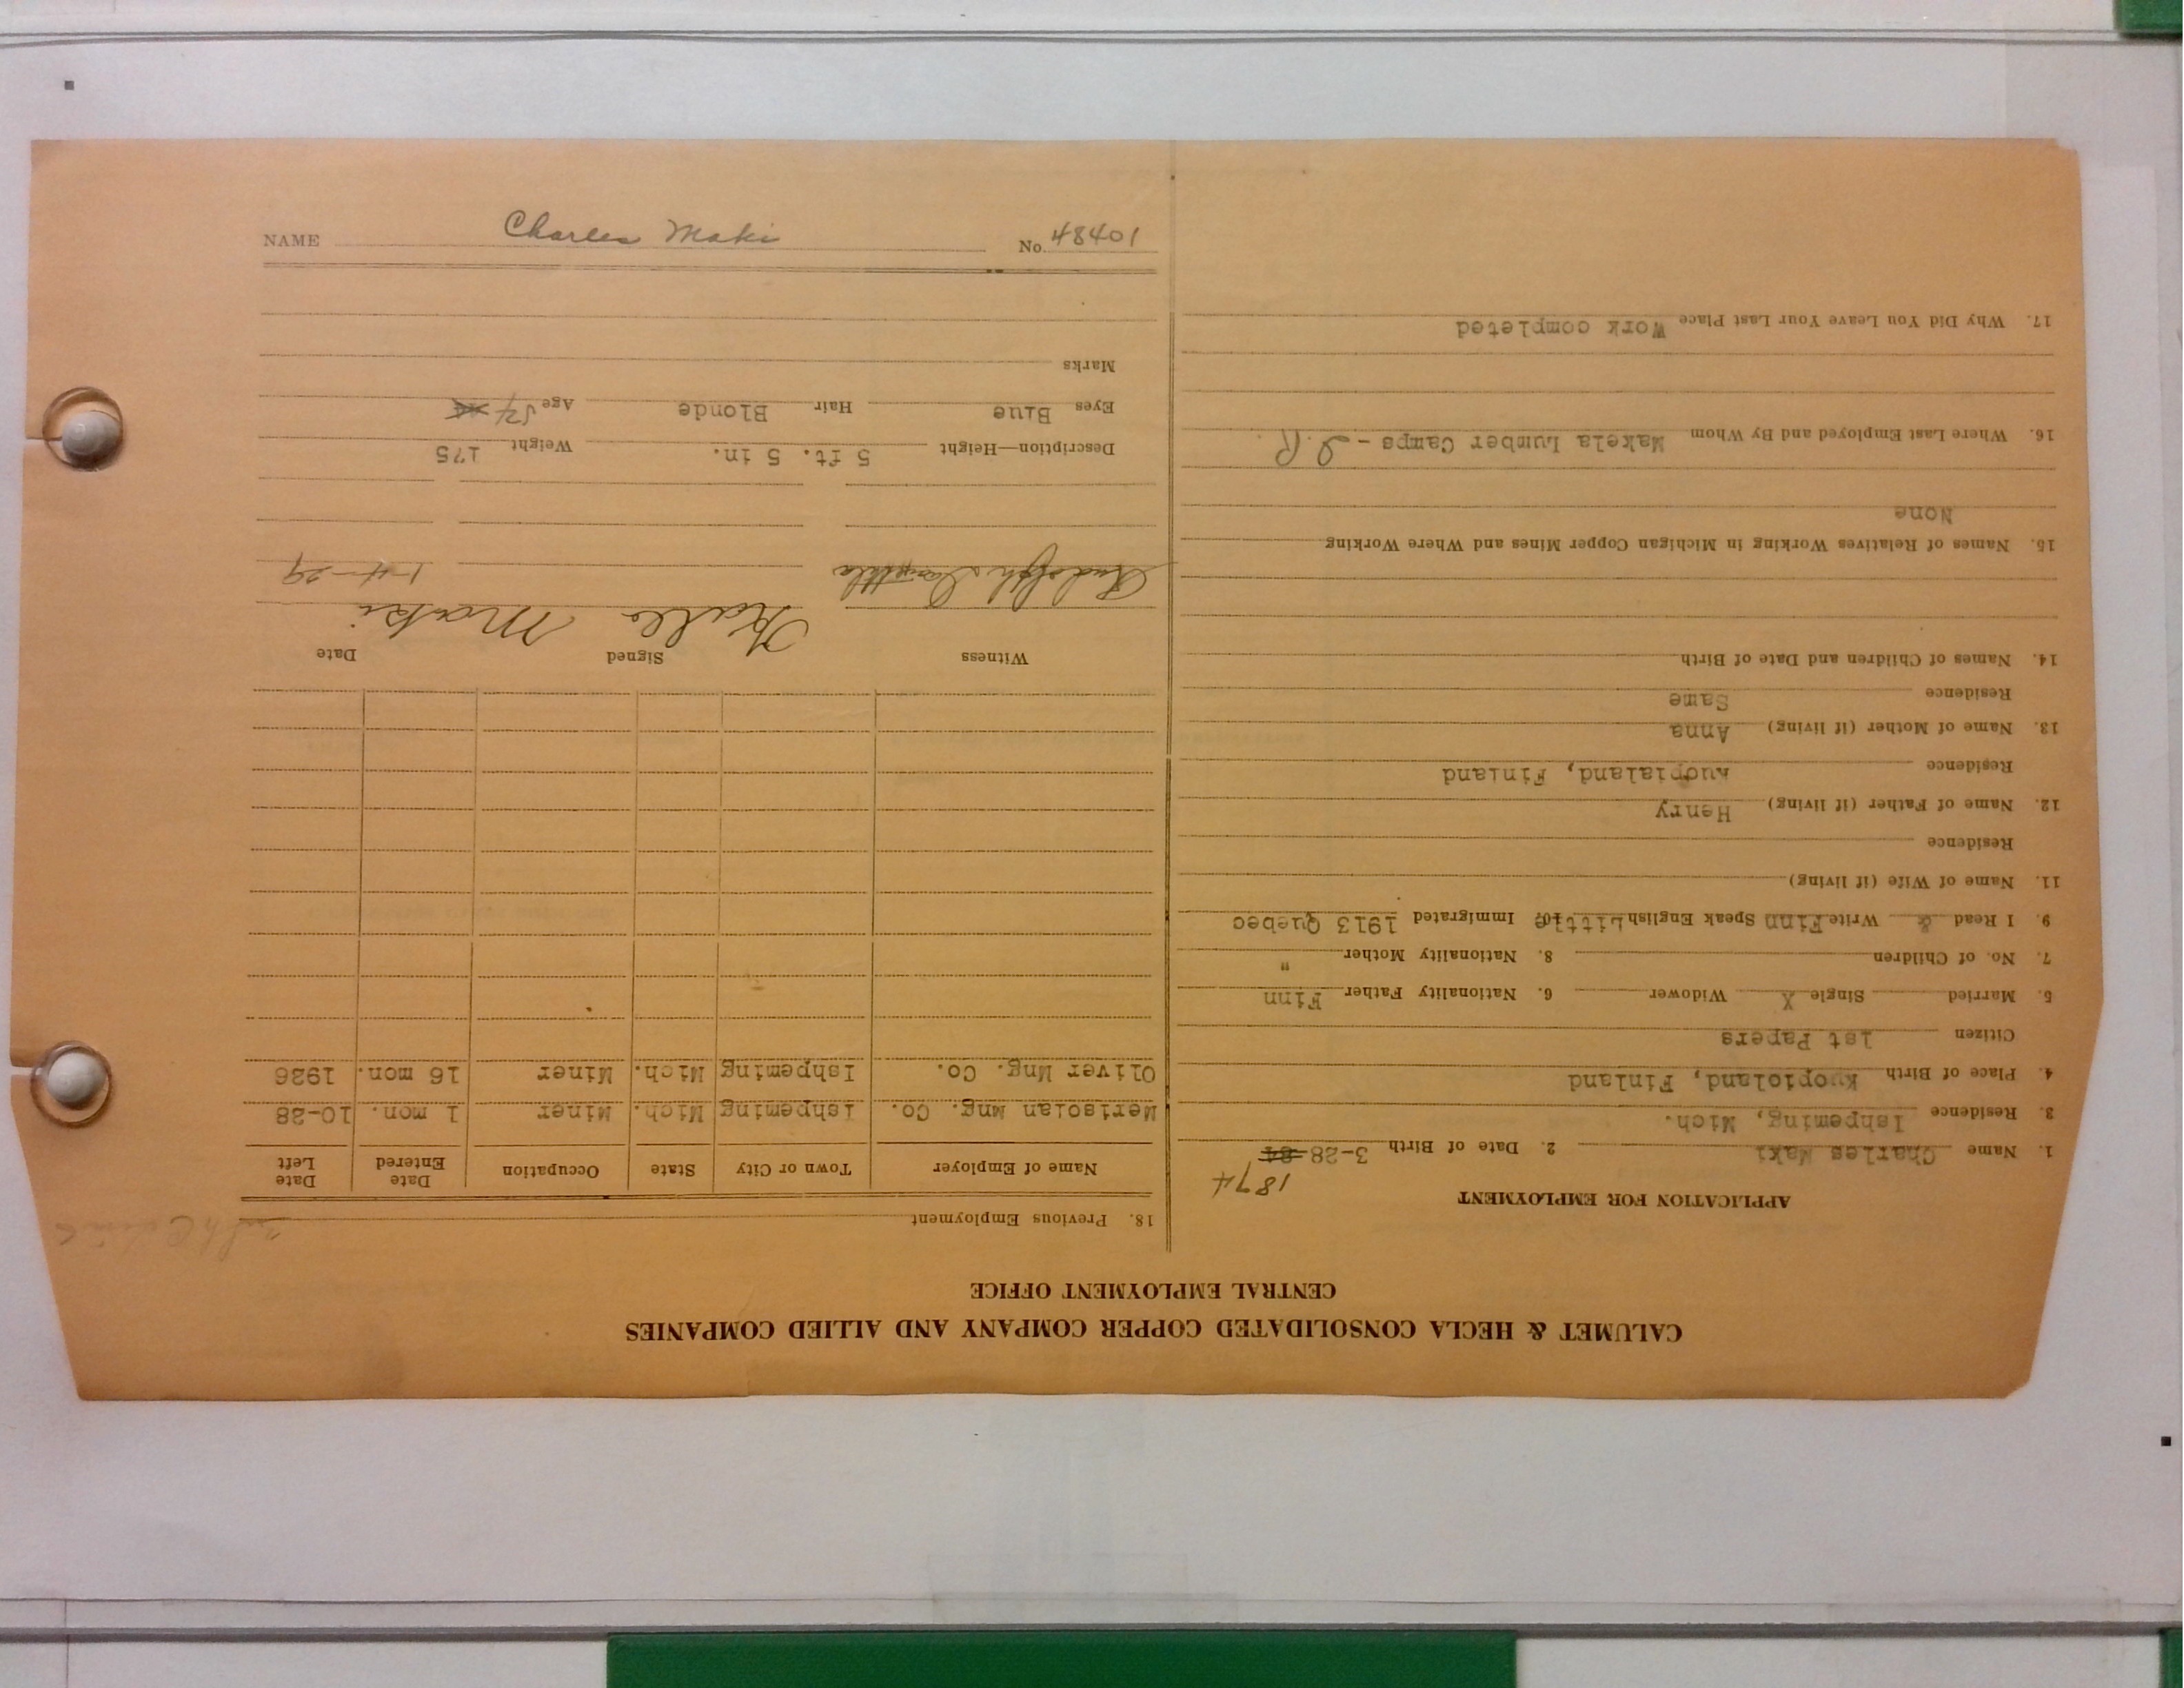 CALUMET & HECLA CONSOLIDATED COPPER COMPANY AND ALLIED COMPANIES
CENTRAL EMPLOYMENT OFFICE
APPLICATION FOR EMPLOYMENT
1874
1. Name Charles Maki 2. Date of Birth 3-28-84
3. Residence Ishpeming, Mich.
4. Place of Birth Kuopioland, Finland
Citizen 1st Papers
5. Married Single X Widower 6. Nationality Father Finn
7. No. of Children 8. Nationality Mother "
9. I Read & Write Finn Speak English Little 10. Immigrated 1913 Quebec
11. Name of Wife (if living)
Residence
12. Name of Father (if living) Henry
Residence Kuopialand, Finland
13. Name of Mother (if living) Anna
Residence Same
14. Names of Children and Date of Birth
15. Names of Relatives Working in Michigan Copper Mines and Where Working
None
16. Where Last Employed and By Whom Makela Lumber Camps - I.R.
17. Why Did You Leave Your Last Place Work completed
18. Previous Employment
Name of Employer Town or City State Occupation Date Entered Date Left
Merisoian Mng. Co. Ishpeming Mich. Miner 1 mon. 10-28
Oliver Mng. Co. Ishpeming Mich. Miner 16 mon. 1926
Witness Signed Date
Rudolph Kalle Maki 1-4-29
Description—Height 5 ft. 5 in. Weight 175
Eyes Blue Hair Blonde Age 54
Marks
NAME Charles Maki No. 48401